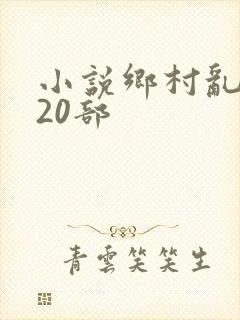 小説鄉村亂
20部
青雲笑笑生